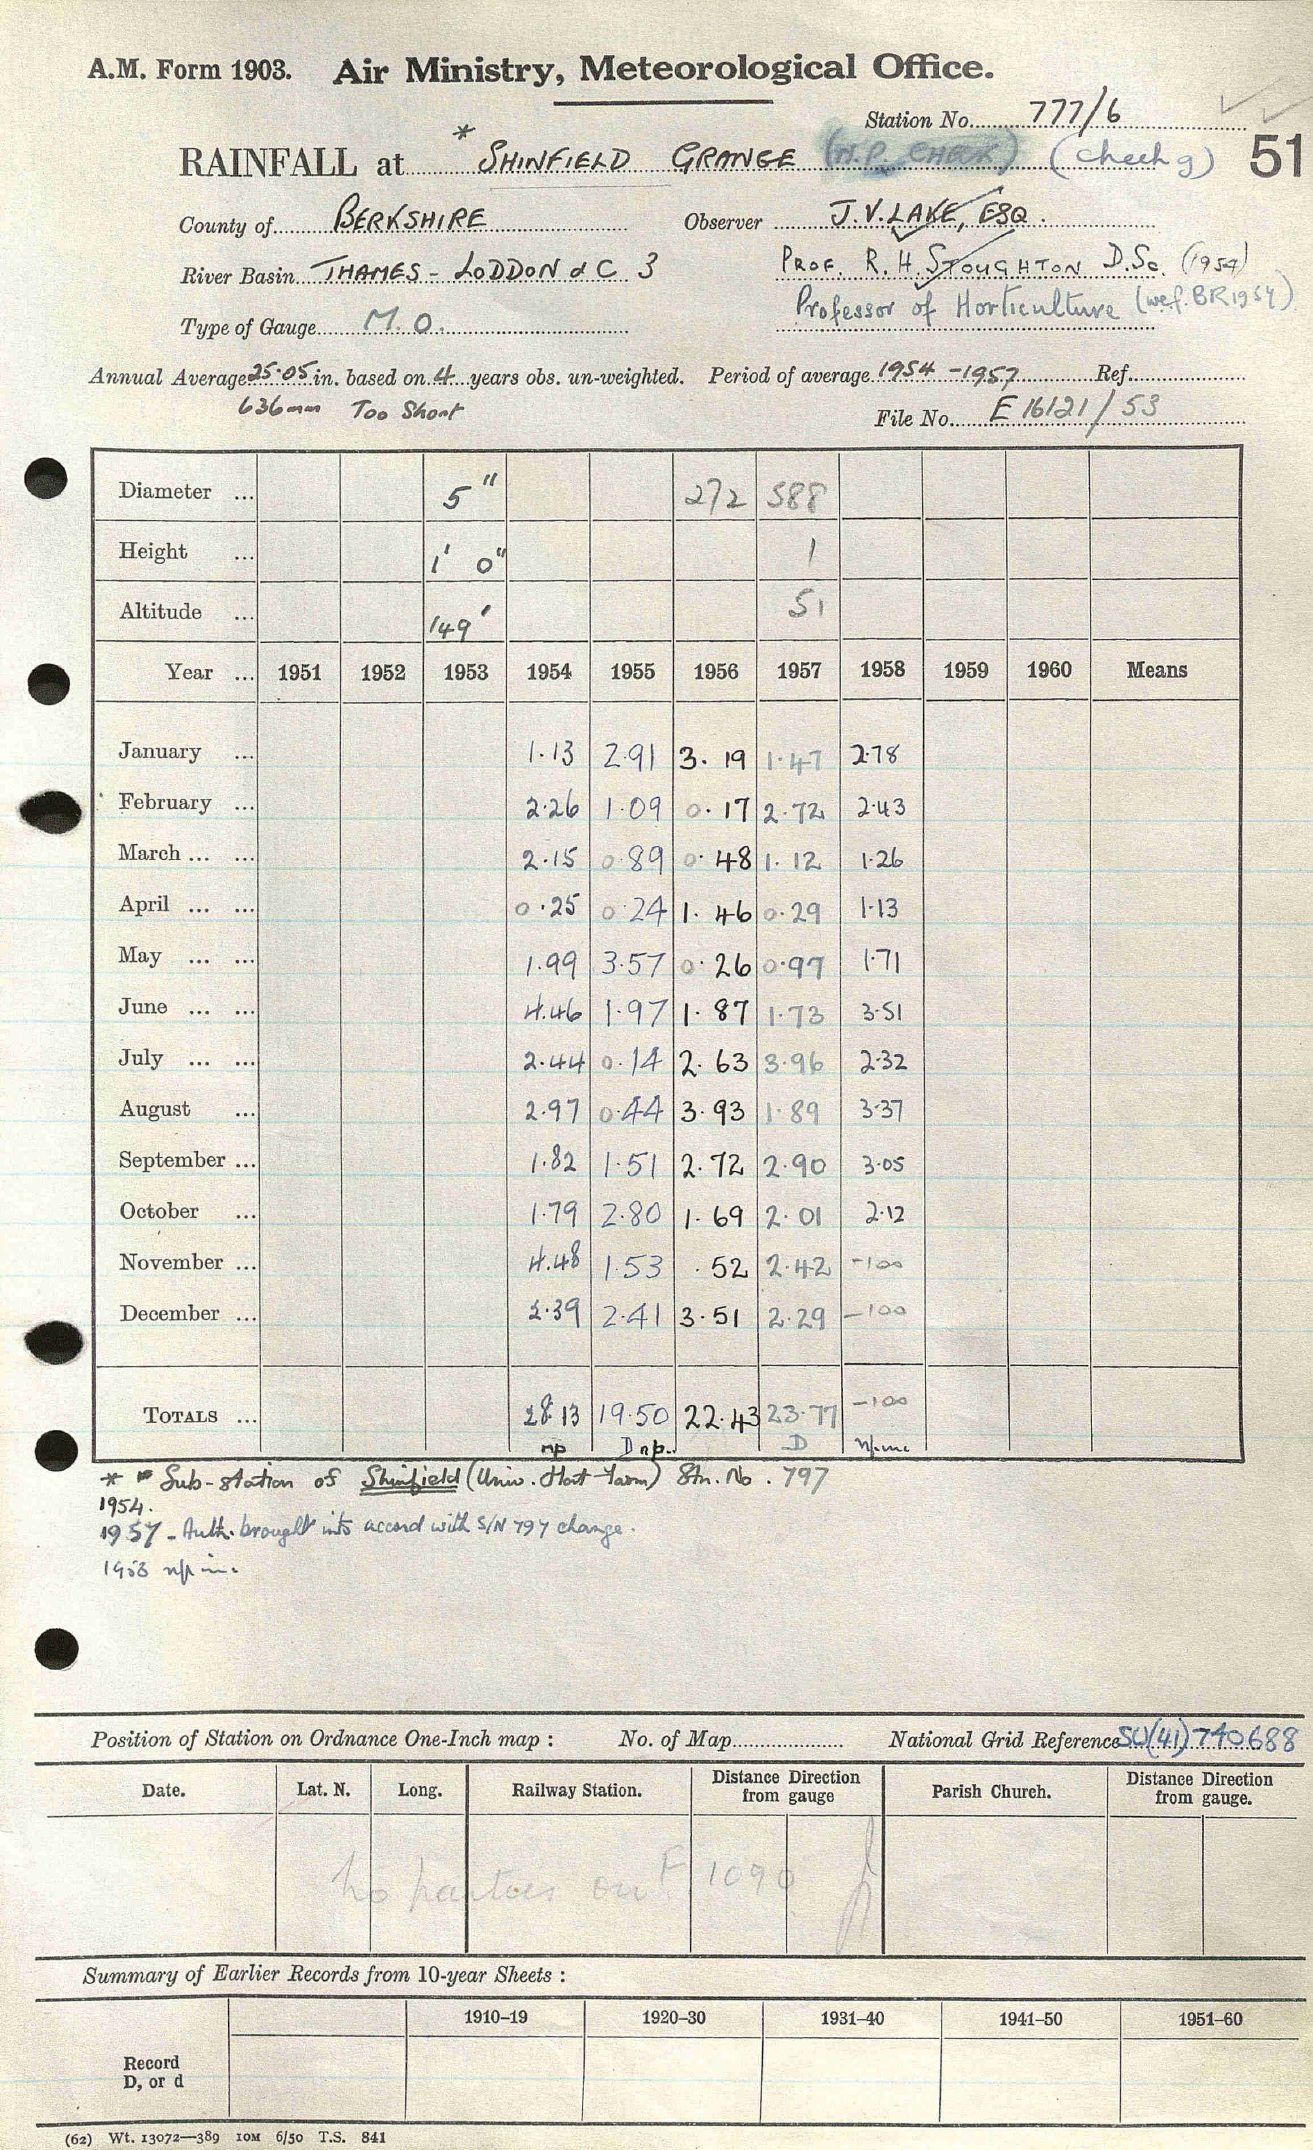 A.M. Form 1903. Air Ministry, Meteorological Office.
Station No. 777/6
RAINFALL at * SHINFIELD GRANGE (N.P. CHECK) (Check g) 51
County of BERKSHIRE Observer J.V. LAKE, ESQ.
River Basin THAMES - LODDON & C 3 PROF. R.H. STOUGHTON D.Sc. (1954)
Professor of Horticulture (wef. BR1954)
Type of Gauge M.O.
Annual Average 25.05 in. based on 4 years obs. un-weighted. Period of average 1954-1957 Ref.
636mm Too Short
File No. E 16121/53
Diameter ... 5" 272 588
Height ... 1' 0" 1
Altitude ... 149' 51
Year ... 1951 1952 1953 1954 1955 1956 1957 1958 1959 1960 Means
January ... 1.13 2.91 3.19 1.47 2.78
February ... 2.26 1.09 0.17 2.72 2.43
March ... ... 2.15 0.89 0.48 1.12 1.26
April ... ... 0.25 0.24 1.46 0.29 1.13
May ... ... 1.99 3.57 0.26 0.97 1.71
June ... ... 4.46 1.97 1.87 1.73 3.51
July ... ... 2.44 0.14 2.63 3.96 2.32
August ... 2.97 0.44 3.93 1.89 3.37
September ... 1.82 1.51 2.72 2.90 3.05
October ... 1.79 2.80 1.69 2.01 2.12
November ... 4.48 1.53 .52 2.42 -100
December ... 2.39 2.41 3.51 2.29 -100
TOTALS ... 28.13 19.50 22.43 23.77 -100
np D np. D np.inc
* Sub-station of Shinfield (Univ. Hort Farm) Stn. No. 797
1954.
1957 - Auth. brought into accord with S/N 797 change.
1958 np inc
Position of Station on Ordnance One-Inch map : No. of Map National Grid Reference SU(41)740688
Date. Lat. N. Long. Railway Station. Distance from gauge Direction Parish Church. Distance from gauge. Direction
no parties on F 1090
Summary of Earlier Records from 10-year Sheets :
1910–19 1920–30 1931–40 1941–50 1951–60
Record
D, or d
(62) Wt. 13072—389 10M 6/50 T.S. 841